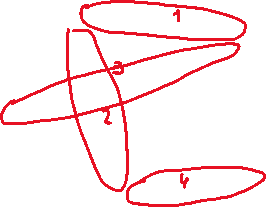 1
3
2
4